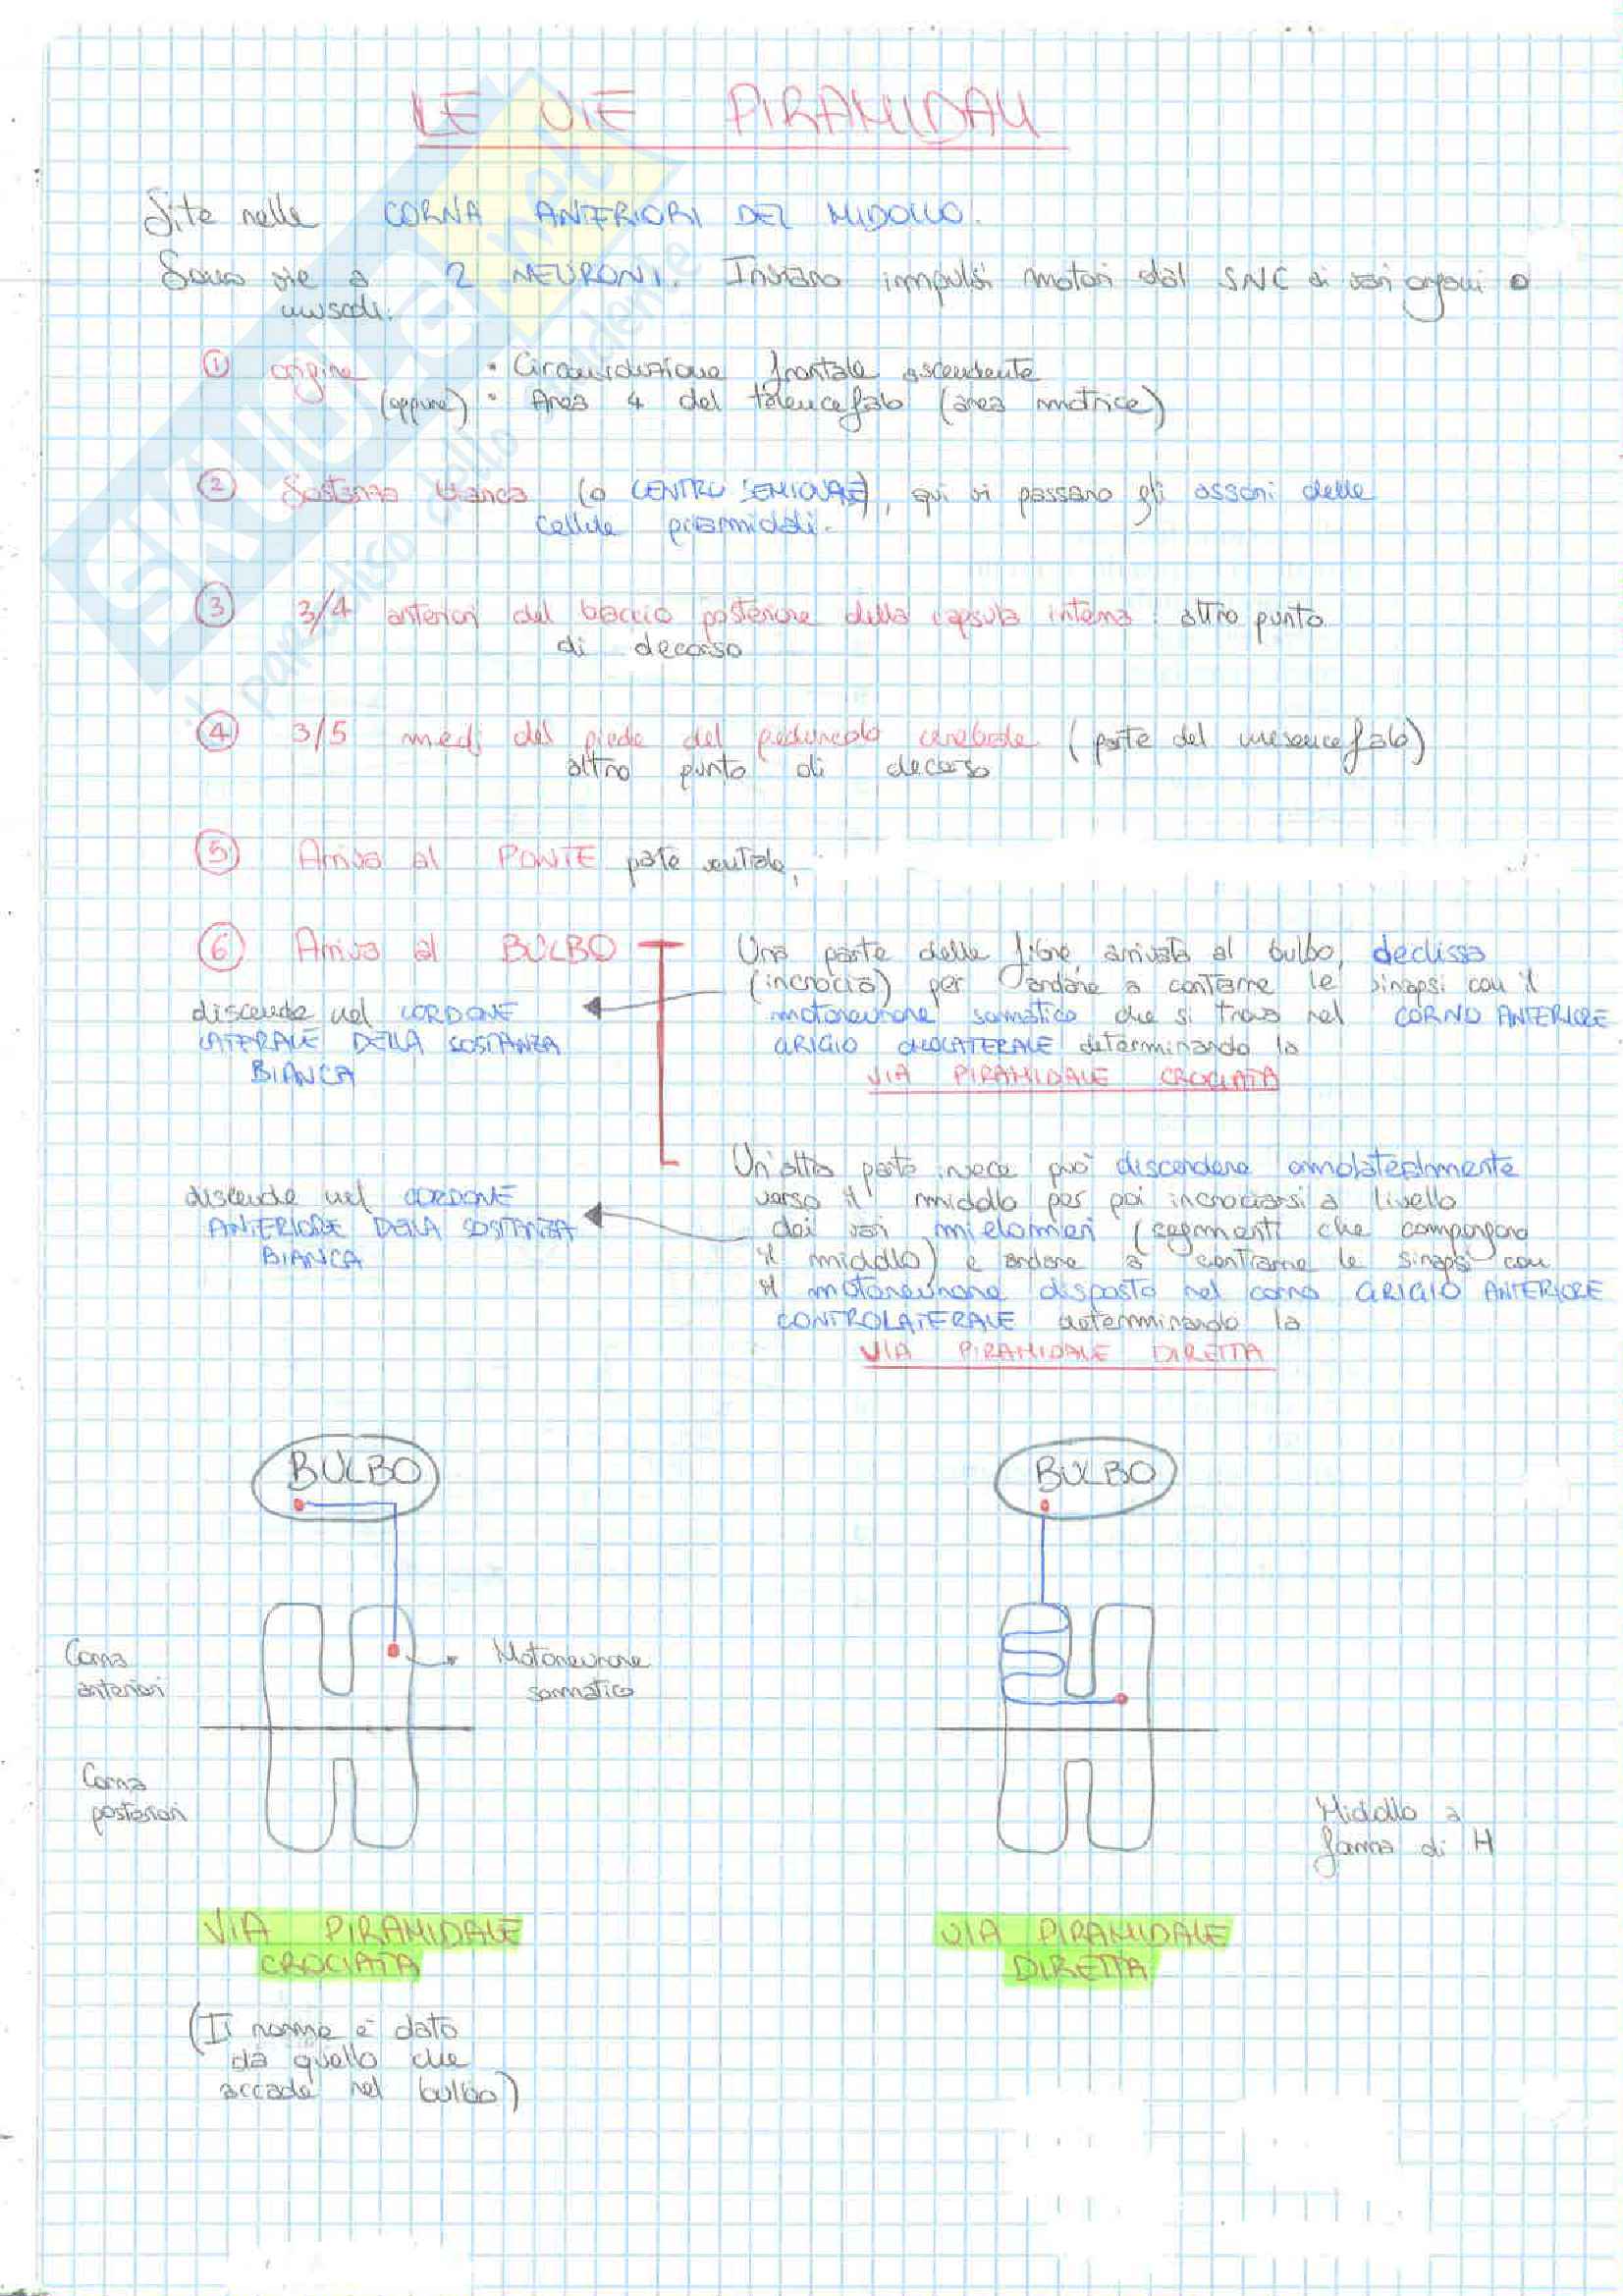 LE VIE PIRAMIDALI
Site nelle CORNA ANTERIORI DEL MIDOLLO.
Sono vie a 2 NEURONI. Inviano impulsi motori dal SNC ai vari organi o
muscoli.
① origine • Circonvoluzione frontale ascendente
(oppure) • Area 4 del telencefalo (area motrice)
② Sostanza bianca (o CENTRO SEMIOVALE), qui vi passano gli assoni delle
cellule piramidali.
③ 3/4 anteriori del braccio posteriore della capsula interna : altro punto
di decorso
④ 3/5 medi del piede del peduncolo cerebrale (parte del mesencefalo)
altro punto di decorso
⑤ Arriva al PONTE parte ventrale,
⑥ Arriva al BULBO
Una parte delle fibre, arrivata al bulbo, declissa
(incrocia) per andare a contrarre le sinapsi con il
motoneurone somatico che si trova nel CORNO ANTERIORE
GRIGIO OMOLATERALE determinando la
VIA PIRAMIDALE CROCIATA
discende nel CORDONE
LATERALE DELLA SOSTANZA
BIANCA
Un'altra parte invece può discendere omolateralmente
verso il midollo per poi incrociarsi a livello
dei vari mielomeri (segmenti che compongono
il midollo) e andare a contrarre le sinapsi con
il motoneurone disposto nel corno GRIGIO ANTERIORE
CONTROLATERALE determinando la
VIA PIRAMIDALE DIRETTA
discende nel CORDONE
ANTERIORE DELLA SOSTANZA
BIANCA
BULBO
BULBO
Corna
anteriori
Motoneurone
somatico
Corna
posteriori
Midollo a
forma di H
VIA PIRAMIDALE
CROCIATA
VIA PIRAMIDALE
DIRETTA
(Il nome è dato
da quello che
accade nel bulbo)
SKUOLA.net
il paradiso dello studente